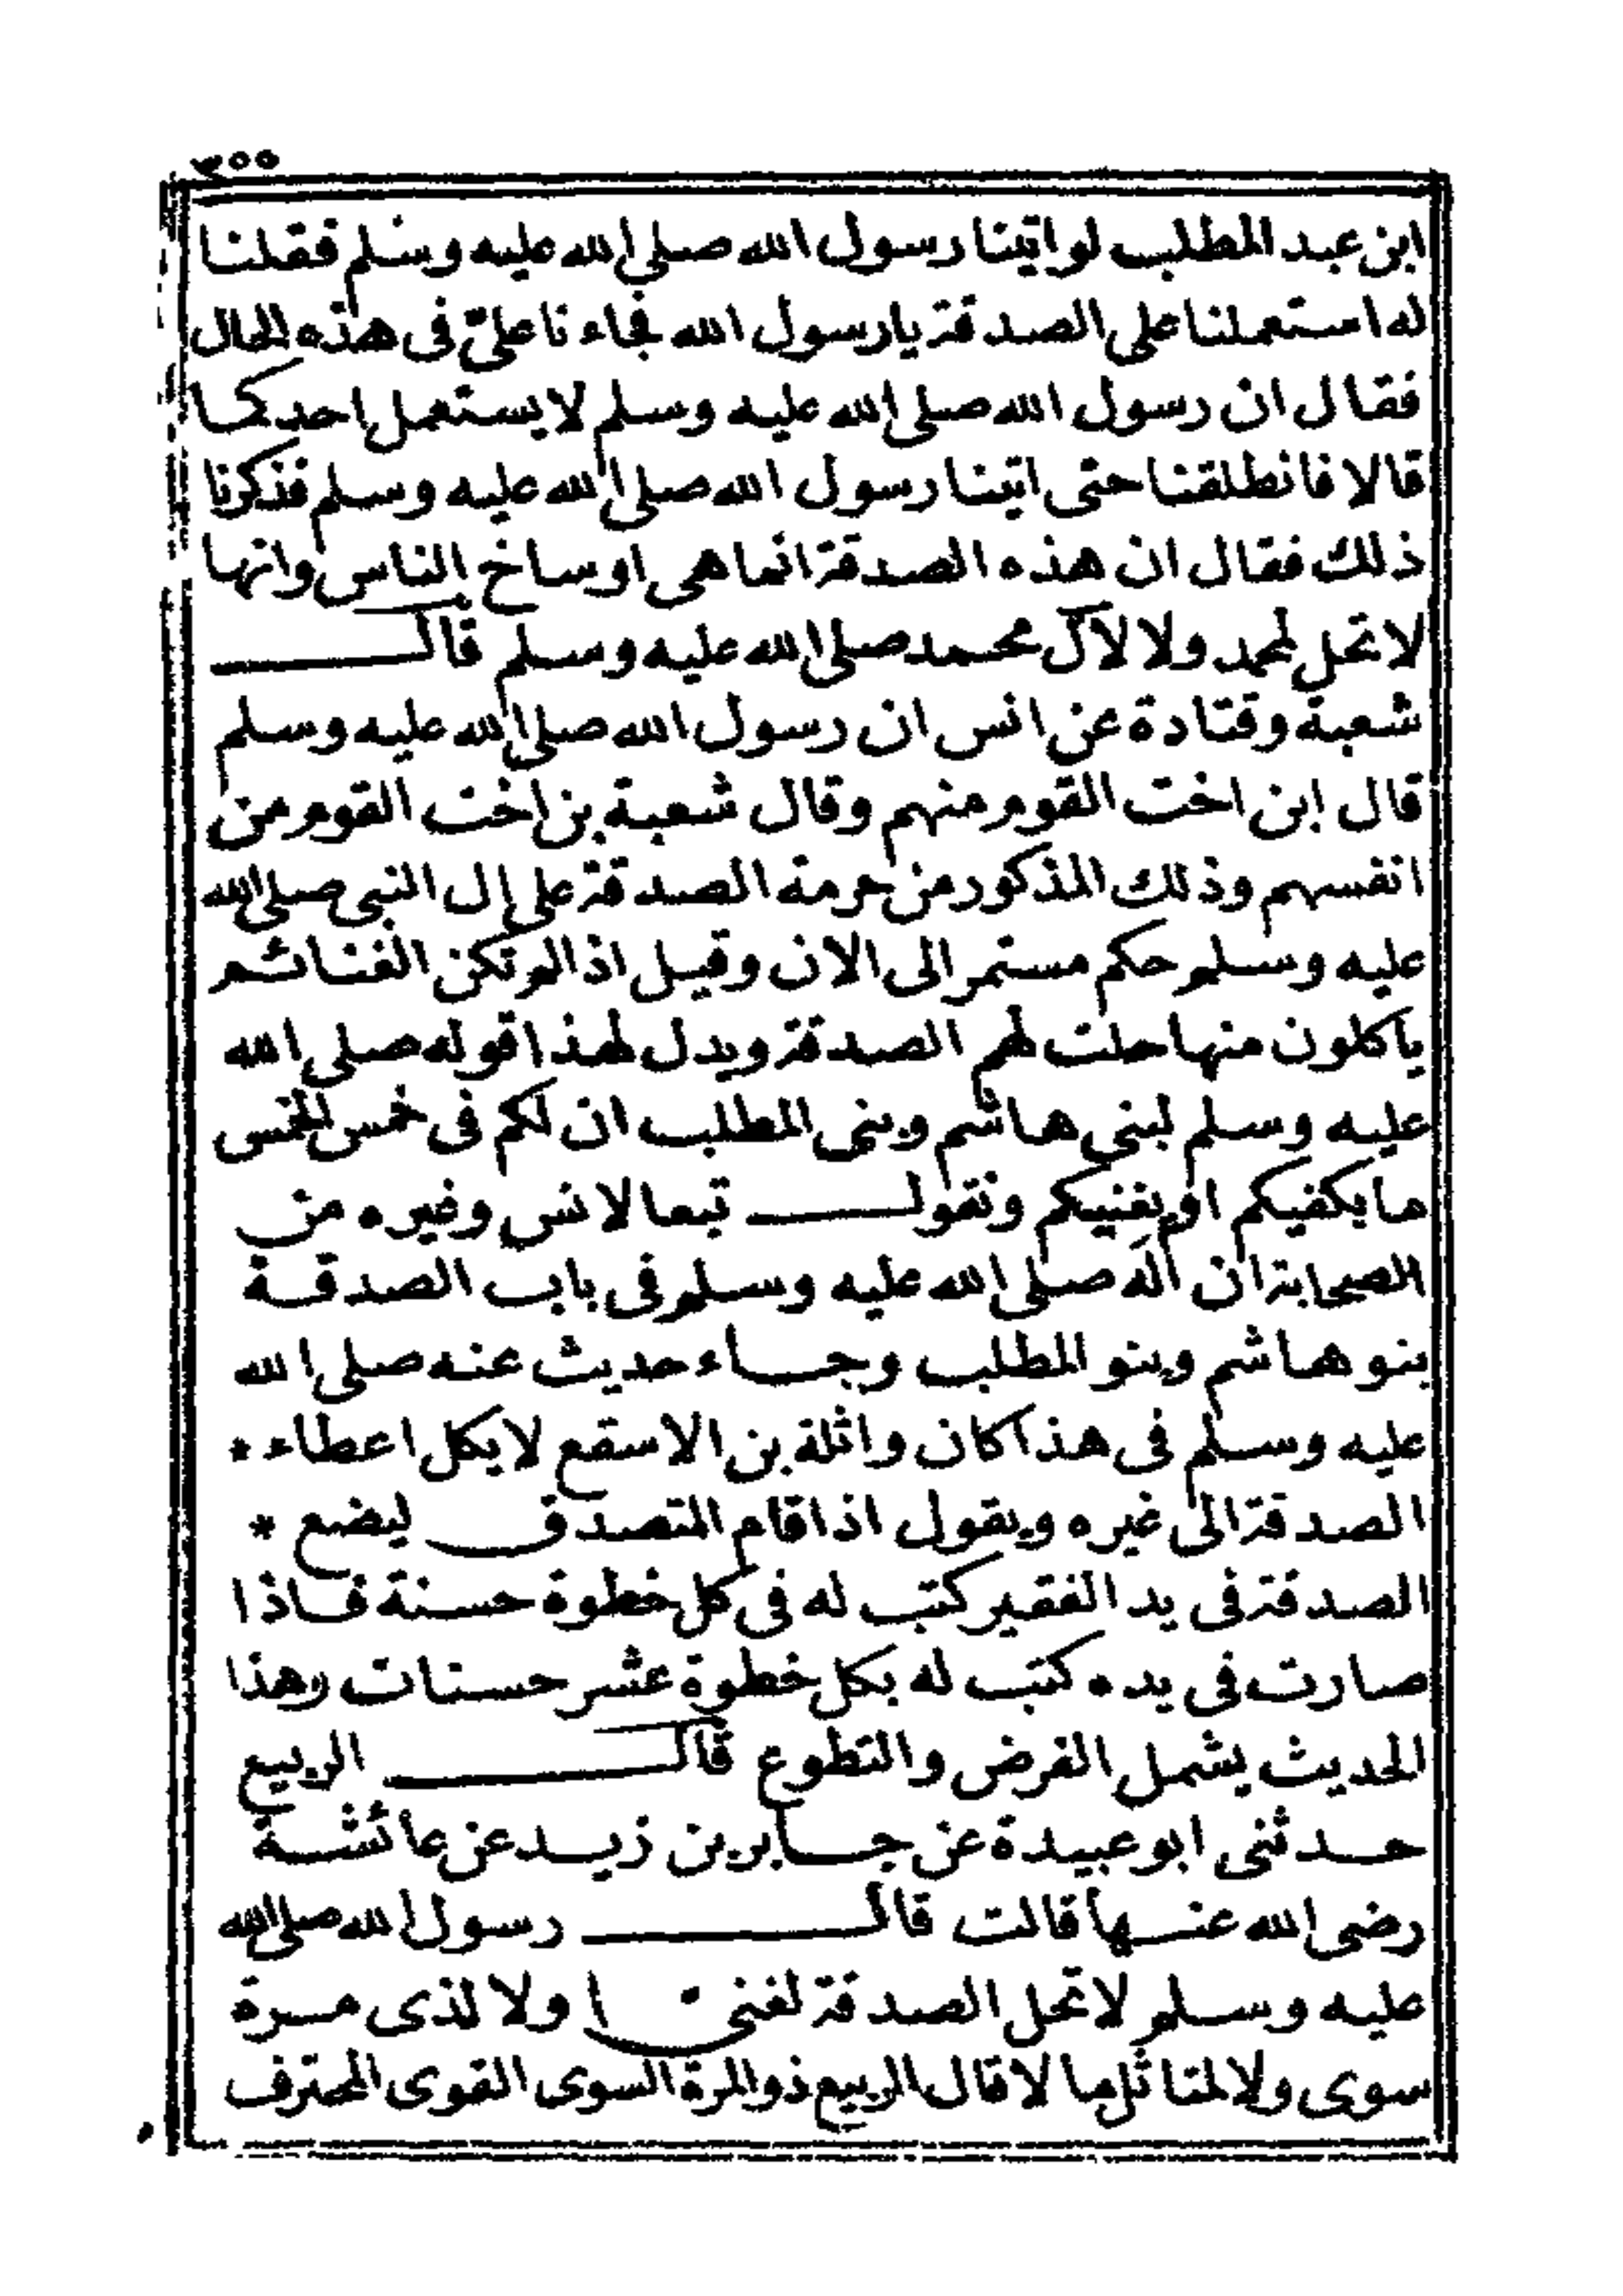 ٣٥٥
ابن عبد المطلب لو اتينا رسول الله صلى الله عليه وسلم فقلنا
له استعملنا على الصدقة يا رسول الله فجاءنا علىّ فى هذه الحال
فقال ان رسول الله صلى الله عليه وسلم لا يستعمل احدكما
قالا فانطلقنا حتى اتينا رسول الله صلى الله عليه وسلم فذكرنا
ذلك فقال ان هذه الصدقة انما هى اوساخ الناس وانها
لا تحل لمحمد ولا لآل محمد صلى الله عليه وسلم قال
شعبة وقتادة عن انس ان رسول الله صلى الله عليه وسلم
قال ابن اخت القوم منهم وقال شعبة بن اخت القوم من
انفسهم وذلك المذكور من حرمة الصدقة على ال النبى صلى الله
عليه وسلم حكم مستمر الى الان وقيل اذا لم تكن الغنائم
يأكلون منها حلت لهم الصدقة ويدل لهذا قوله صلى الله
عليه وسلم لبنى هاشم وبنى المطلب ان لكم فى خمس الخمس
ما يكفيكم او يغنيكم ونقول تبعا لانس وغيره من
الصحابة ان آله صلى الله عليه وسلم فى باب الصدقة
بنو هاشم وبنو المطلب وجاء حديث عنه صلى الله
عليه وسلم فى هذا كان واثلة بن الاسقع لا يكل اعطاء *
الصدقة الى غيره ويقول اذا قام المتصدق ليضع *
الصدقة فى يد الفقير كتب له فى كل خطوة حسنة فاذا
صارت فى يده كتب له بكل خطوة عشر حسنات وهذا
الحديث يشمل الفرض والتطوع قال الربيع
حدثنى ابو عبيدة عن جابر بن زيد عن عائشة
رضى الله عنها قالت قال رسول الله صلى الله
عليه وسلم لا تحل الصدقة لغنى ولا لذى مرة
سوى ولا لمتاثل مالا قال الربيع ذو المرة السوى القوى المحترف